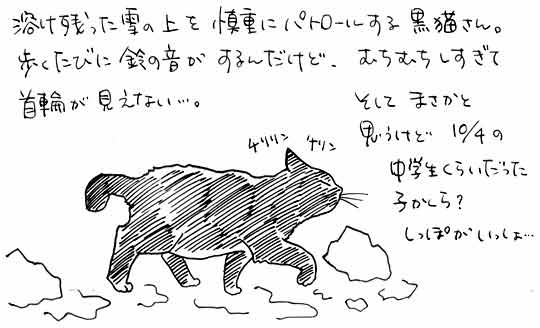 溶け残った雪の上を慎重にパトロールする黒猫さん。
歩くたびに鈴の音がするんだけど、むちむちしすぎて
首輪が見えない…。
そして まさかと
思うけど 10/4の
中学生くらいだった
子かしら?
しっぽがいっしょ…
チリリン チリン